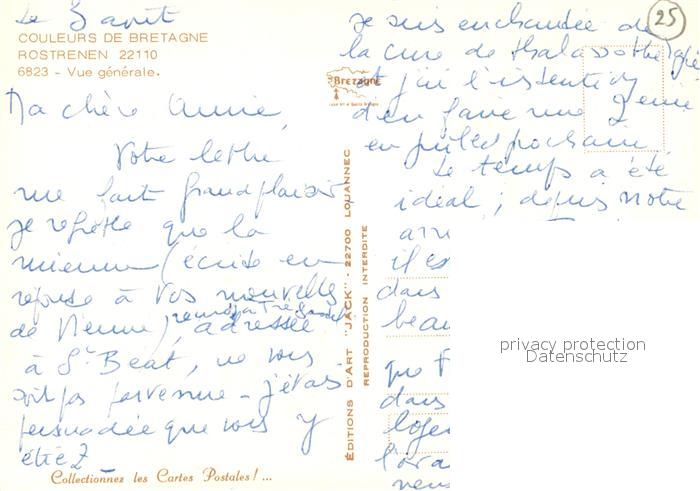 Le 3 août
COULEURS DE BRETAGNE
ROSTRENEN 22110
6823 - Vue générale.
Ma chère Annie,
Votre lettre
me fait grand plaisir
je regrette que la
mienne (écrite en
réponse à vos nouvelles
de Vienne), adressée
à St Béat, ne vous
soit pas parvenue - j'étais
persuadée que vous y
étiez
Collectionnez les Cartes Postales! ...
ÉDITIONS D'ART "JACK" · 22700 LOUANNEC
REPRODUCTION INTERDITE
Bretagne
25
je suis enchantée de
la cure de thalassothérapie
et j'ai l'intention
d'en faire une 2eme
en juillet prochain.
Le temps a été
idéal ; depuis notre
arri
il es
dans
beau
que
dans
loge
l'ora
privacy protection
Datenschutz